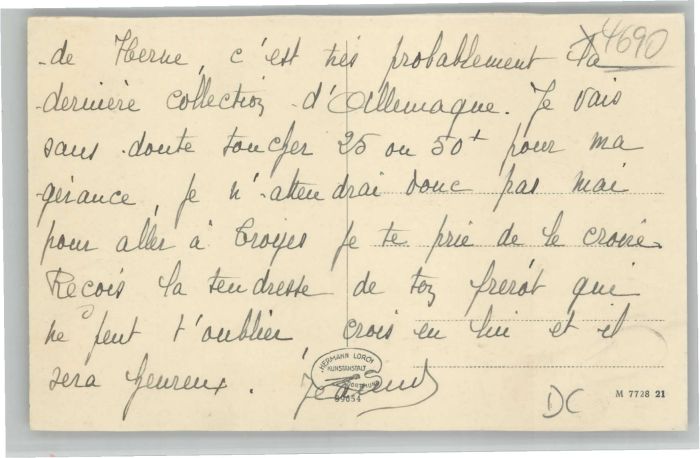 4690
de Herne, c'est très probablement la
dernière collection d'Allemagne. Je vais
sans doute toucher 25 ou 50f pour ma
gérance, je n'attendrai donc pas mai
pour aller à Troyes je te prie de le croire.
Reçois la tendresse de ton frérot qui
ne peut t'oublier, crois en lui et il
sera heureux.
HERMANN LORCH
KUNSTANSTALT
DORTMUND
89654
DC
M 7728 21